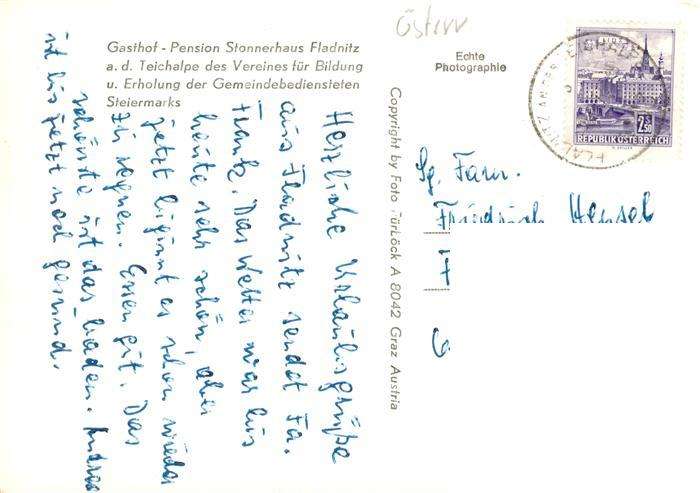 Österr
Gasthof - Pension Stonnerhaus Fladnitz
a. d. Teichalpe des Vereines für Bildung
u. Erholung der Gemeindebediensteten
Steiermarks
Echte
Photographie
Copyright by Foto Türlöck A 8042 Graz Austria
2 S 50
REPUBLIK ÖSTERREICH
Herzliche Urlaubsgrüße
aus Fladnitz sendet Fa.
Trunk. Das Wetter war bis
heute sehr schön, aber
jetzt beginnt es schon wieder
zu regnen. Essen gut. Das
schönste ist das baden.
ist bis jetzt noch gesund.
Sg. Fam.
Friedrich Hensel